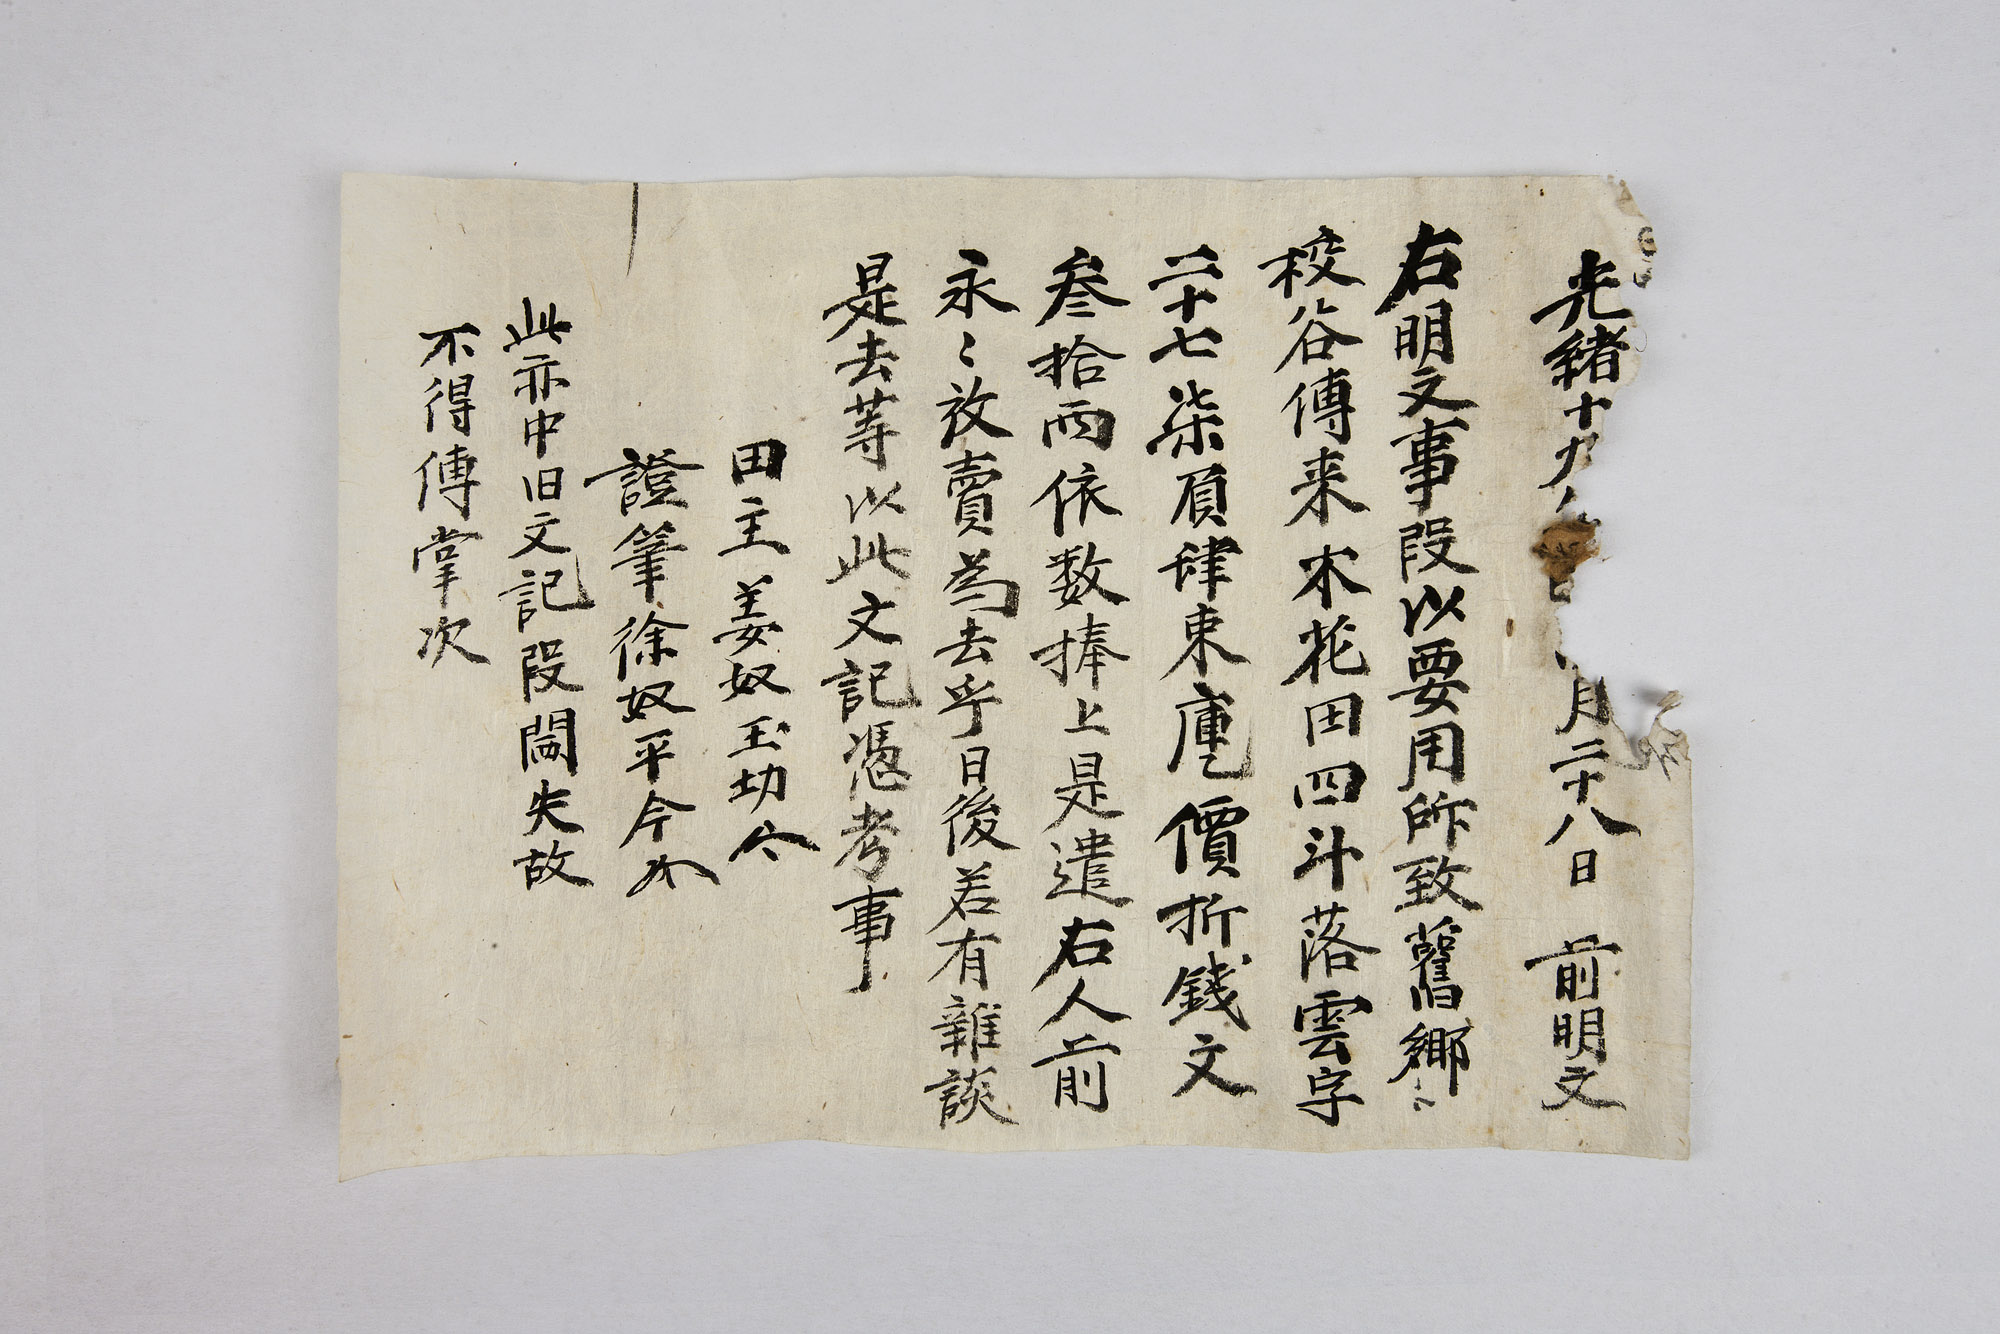 光緒十九 月二十八日 前明文
右明文事段以要用所致舊鄕〻
校谷傳来木花田四斗落雲字
二十七柒頃肆束㐣價折錢文
叄拾両依数捧上是遣右人前
永〻放賣為去乎日後若有雜談
是去等以此文記憑考事
田主姜奴玉功
證筆徐奴平今
此亦中旧文記段閪失故
不得傳掌次